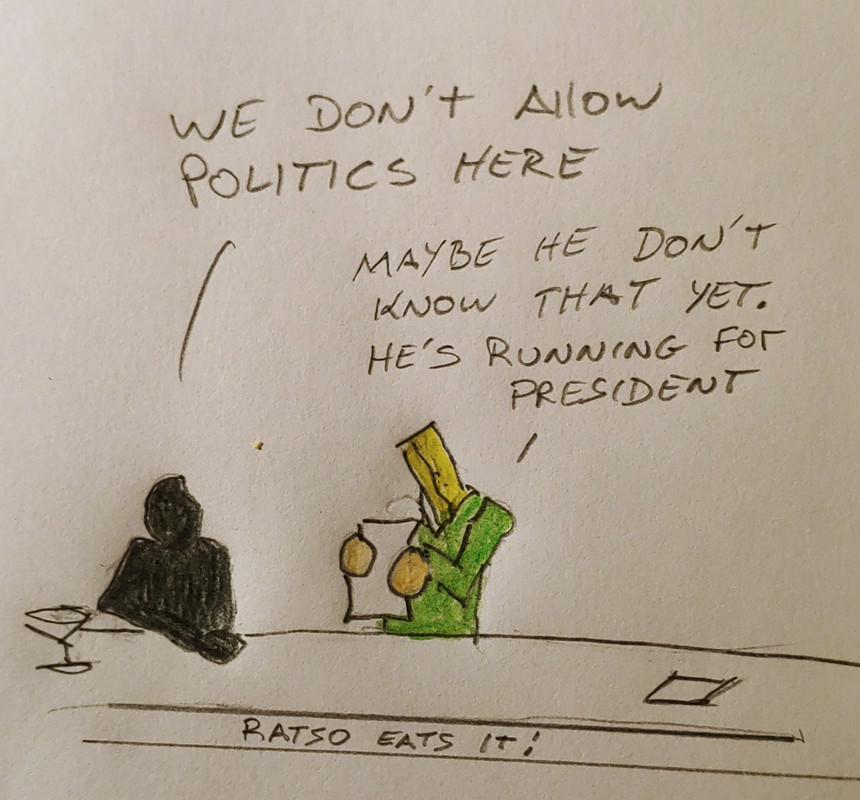 WE DON'T Allow
POLITICS HERE
MAYBE HE DON'T
KNOW THAT YET.
HE'S RUNNING FOR
PRESIDENT
RATSO EATS IT!